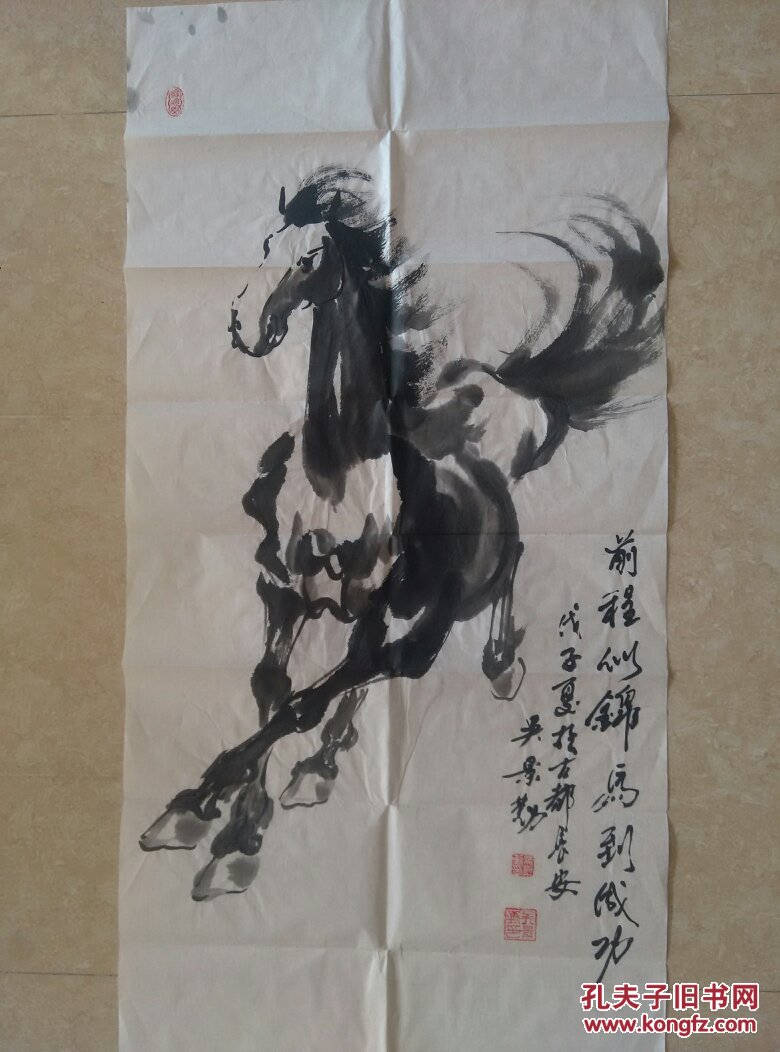 前程似锦马到成功
戊子夏于古都长安
吴景勤
孔夫子旧书网
www.kongfz.com